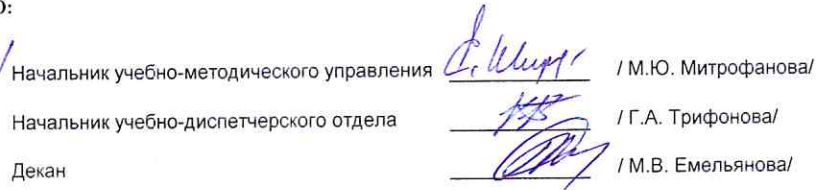 О:
Начальник учебно-методического управления / М.Ю. Митрофанова/
Начальник учебно-диспетчерского отдела / Г.А. Трифонова/
Декан / М.В. Емельянова/